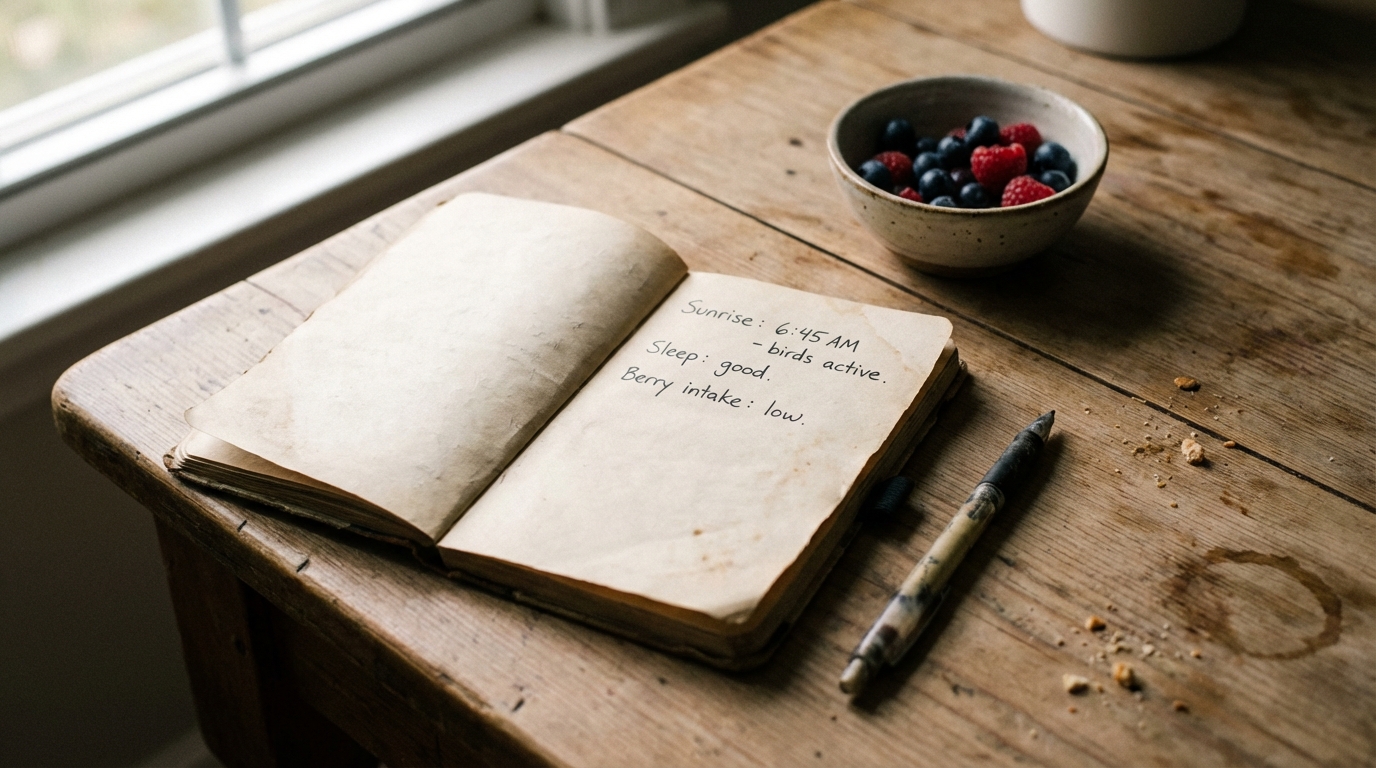 Sunrise: 6:45 AM
- birds active.
Sleep: good.
Berry intake: low.